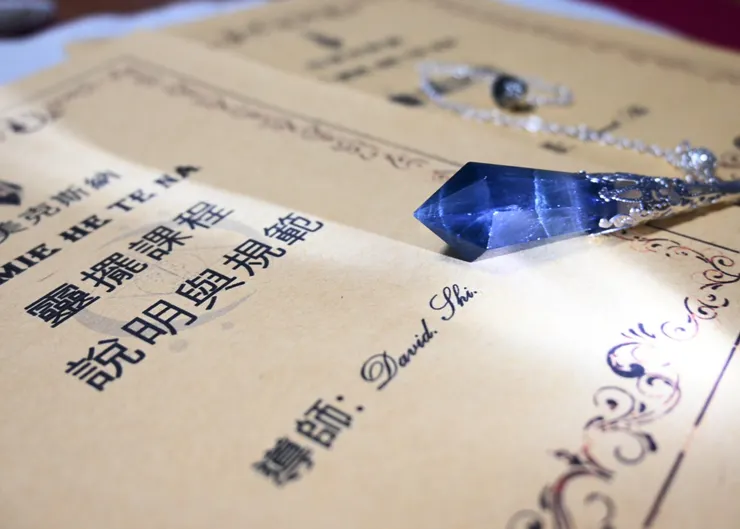 美克斯納
MIE HE TE NA
靈擺課程
說明與規範
導師：David. Shi.